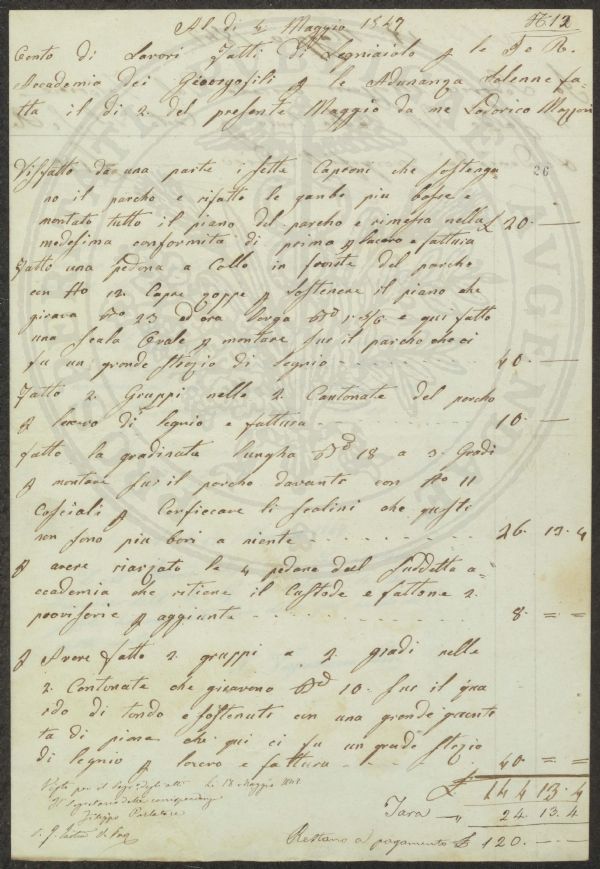 Al di 4 Maggio 1847
N. 12
Conto di Lavori Fatti di Legniaiolo p le I e R.
Accademia dei Gieorgofili p le Adunanza Solenne fa-
tta il di 2. del presente Maggio da me Lodovico Mazzoni
26
Disfatto da una parte i sette Caproni che sostenga
no il parcho e rifatto le ganbe piu basse e
montato tutto il piano del parcho e rimessa nella £ 20. —
medesima conformita di prima p lavoro e fattura
Fatto una pedana a Collo in fronte del parcho
con No 12. Capre zoppe p sostenere il piano che
girava Bo 23 e qui fatto
una scala Ovale p montare sur il parcho che ci
fu un grande strazio di legnio - - - - - 40. —
Fatto 2. Gruppi nelle 2. Cantonate del parcho
p lavoro di legnio e fattura - - - - - 10. —
fatto la gradinata lungha 18 a 3. Gradi
p montare sur il parcho davanti con No 11
Cosciali p Conficcare li scalini che questi
non sono piu boni a niente - - - - - 26. 13. 4
p avere riarzato le 4 pedane del suddetta a-
ccademia che ritiene il Custode e fattone 2.
provisorie p aggiunta - - - - - 8 = =
p Avere fatto 2. gruppi a 2. gradi nelle
2. Cantonate che giravano 10. sur il
di tondo e sostenuti con una grande quanti
ta di piane che qui ci fu un grade strazio
di legnio p lavoro e fattura - - - - - 40 = =
£ 144 13. 4
Visto per il Segr. degli atti li 18 Maggio 1847
Il Segretario delle corrispondenze
Tara — 24. 13. 4
Restano a pagamento £ 120. — —